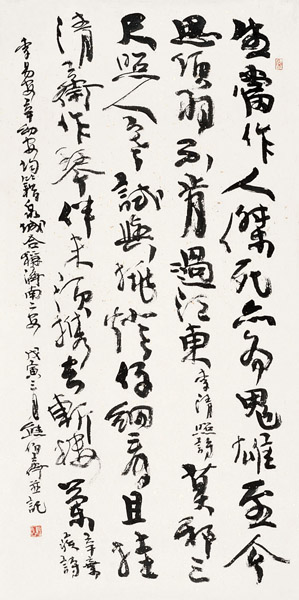 生當作人傑死亦為鬼雄至今
思項羽不肯過江東李清照詩莫邪三
尺照人寒試與挑燈仔細看且挂
清齋作琴伴未須攜去斬樓蘭辛棄疾詩
李易安辛幼安均籍泉城合稱濟南二安戊寅三月熊伯齊並記